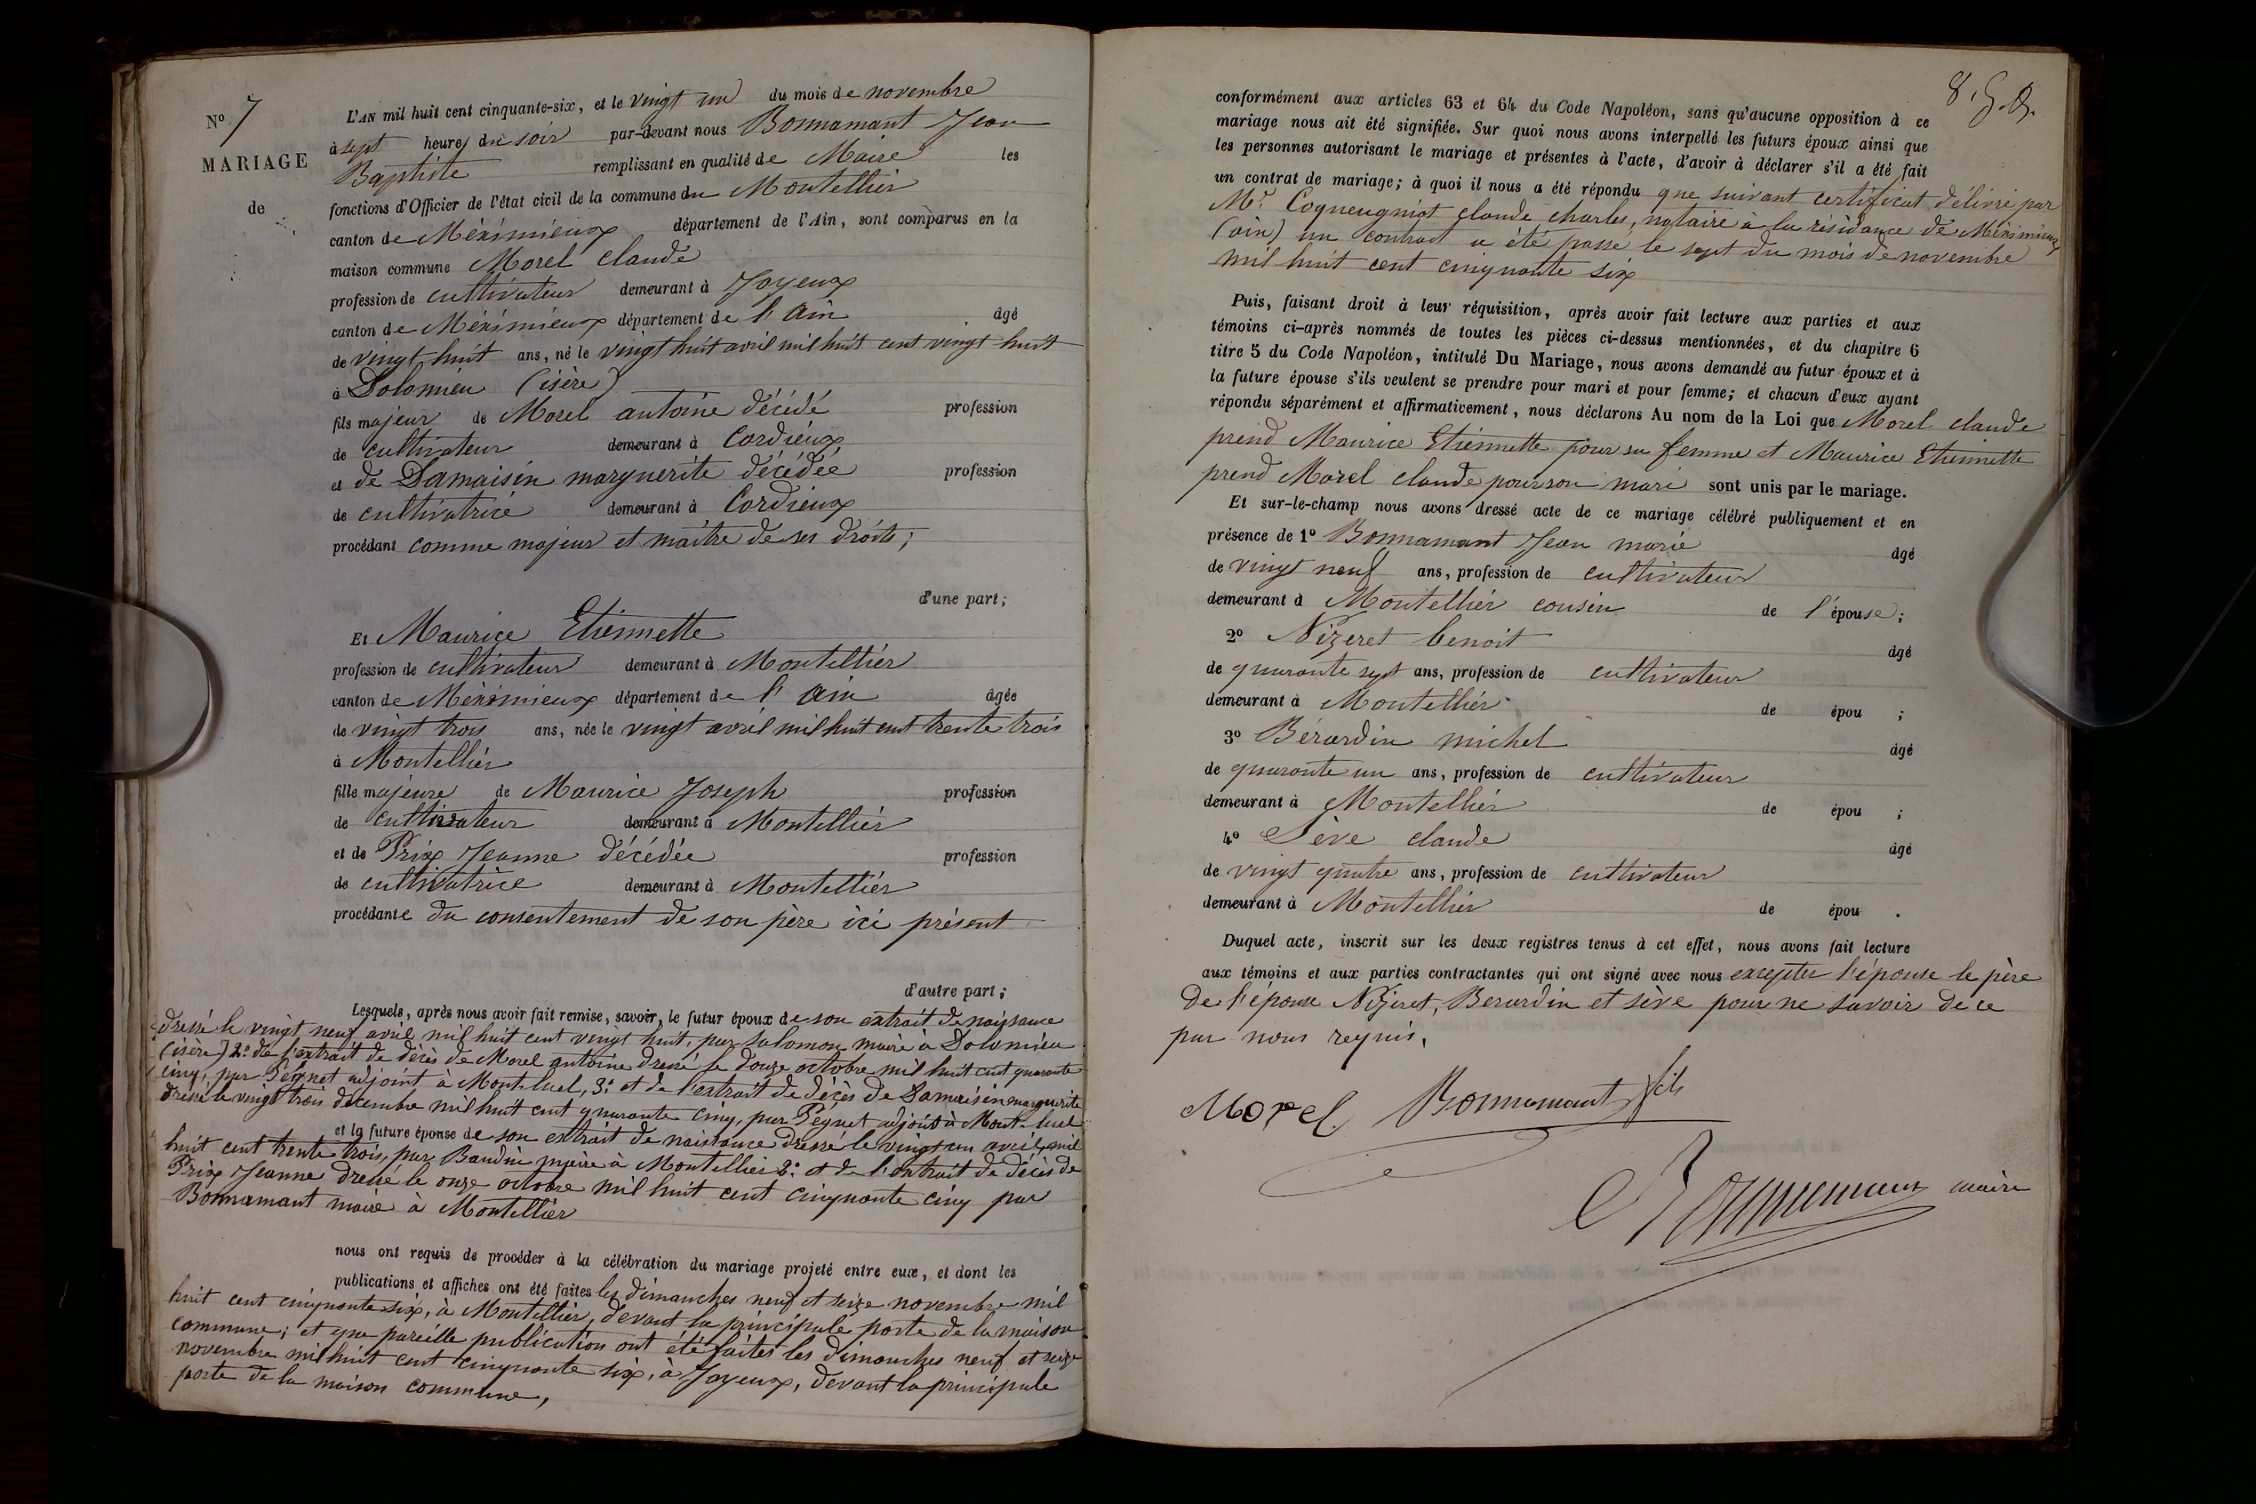 N° 7
MARIAGE
de
L'AN mil huit cent cinquante-six, et le vingt un du mois de novembre
à sept heures du soir par-devant nous Bonnamant Jean
Baptiste remplissant en qualité de Maire les
fonctions d'Officier de l'état civil de la commune du Montellier
canton de Méximieux département de l'Ain, sont comparus en la
maison commune Morel claude
profession de cultivateur demeurant à Joyeux
canton de Méximieux département de l'Ain âgé
de vingt-huit ans, né le vingt huit avril mil huit cent vingt huit
à Dolomieu (isère)
fils majeur de Morel antoine décédé profession
de cultivateur demeurant à Cordieux
et de Damaisin marguerite décédée profession
de cultivatrice demeurant à Cordieux
procédant comme majeur et maître de ses droits;
d'une part;
Et Maurice Etiennette
profession de cultivateur demeurant à Montellier
canton de Méximieux département de l'Ain âgée
de vingt trois ans, née le vingt avril mil huit cent trente trois
à Montellier
fille majeure de Maurice Joseph profession
de cultivateur demeurant à Montellier
et de Prix Jeanne décédée profession
de cultivatrice demeurant à Montellier
procédante du consentement de son père ici présent
d'autre part;
Lesquels, après nous avoir fait remise, savoir, le futur époux de son extrait de naissance
dressé le vingt neuf avril mil huit cent vingt huit, par Salomon maire à Dolomieu
(isère) 2° de l'extrait de décès de Morel antoine dressé le douze octobre mil huit cent quarante
cinq, par Péguet adjoint à Mont-luel, 3° et de l'extrait de décès de Damaisin marguerite
dressé le vingt trois décembre mil huit cent quarante cinq, par Péguet adjoint à Mont-luel
et la future épouse de son extrait de naissance dressé le vingt un avril mil
huit cent trente trois, par Baudin maire à Montellier 2° et de l'extrait de décès de
Prix Jeanne dressé le onze octobre mil huit cent cinquante cinq par
Bonnamant maire à Montellier
nous ont requis de procéder à la célébration du mariage projeté entre eux, et dont les
publications et affiches ont été faites les dimanches neuf et seize novembre mil
huit cent cinquante six, à Montellier, devant la principale porte de la maison
commune; et que pareille publication ont été faites les dimanches neuf et seize
novembre mil huit cent cinquante six, à Joyeux, devant la principale
porte de la maison commune,
conformément aux articles 63 et 64 du Code Napoléon, sans qu'aucune opposition à ce
mariage nous ait été signifiée. Sur quoi nous avons interpellé les futurs époux ainsi que
les personnes autorisant le mariage et présentes à l'acte, d'avoir à déclarer s'il a été fait
un contrat de mariage; à quoi il nous a été répondu que suivant certificat délivré par
Mr. Coqneugniot claude charles, notaire à la résidance de Méximieux
(ain) un contract a été passé le sept du mois de novembre
mil huit cent cinquante six
Puis, faisant droit à leur réquisition, après avoir fait lecture aux parties et aux
témoins ci-après nommés de toutes les pièces ci-dessus mentionnées, et du chapitre 6
titre 5 du Code Napoléon, intitulé Du Mariage, nous avons demandé au futur époux et à
la future épouse s'ils veulent se prendre pour mari et pour femme; et chacun d'eux ayant
répondu séparément et affirmativement, nous déclarons Au nom de la Loi que Morel claude
prend Maurice Etiennette pour sa femme et Maurice Etiennette
prend Morel claude pour son mari sont unis par le mariage.
Et sur-le-champ nous avons dressé acte de ce mariage célébré publiquement et en
présence de 1° Bonnamant Jean marie âgé
de vingt neuf ans, profession de cultivateur
demeurant à Montellier cousin de l'épouse;
2° Nizeret benoit âgé
de quarante sept ans, profession de cultivateur
demeurant à Montellier de épou ;
3° Bérardin michel âgé
de quarante un ans, profession de cultivateur
demeurant à Montellier de épou ;
4° Sève claude âgé
de vingt quatre ans, profession de cultivateur
demeurant à Montellier de épou .
Duquel acte, inscrit sur les deux registres tenus à cet effet, nous avons fait lecture
aux témoins et aux parties contractantes qui ont signé avec nous exceptée l'épouse le père
de l'épouse Nizeret, Berardin et sève pour ne savoir de ce
par nous requis.
Morel Bonnamant fils
Bonnamant maire